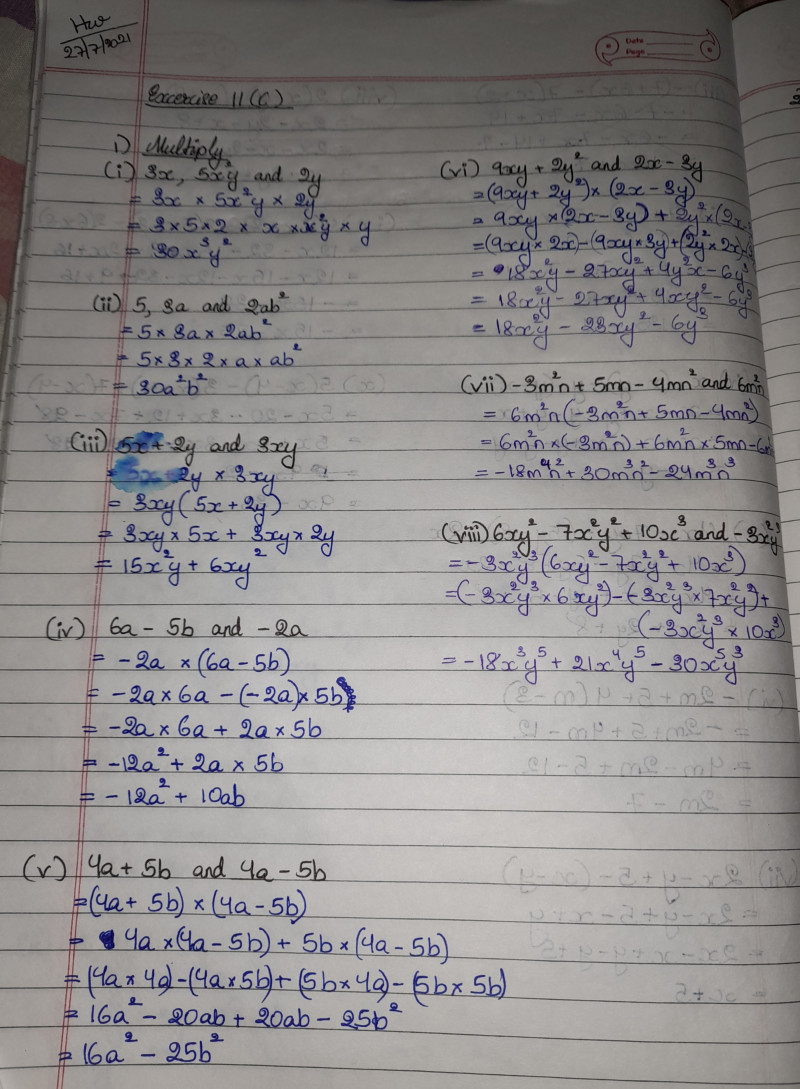 Hw
27/7/2021
Date
Page
Excercise 11(C)
1) Multiply
(i) 3x, 5x²y and 2y
= 3x × 5x²y × 2y
= 3×5×2 × x × x²y × y
= 30x³y²
(ii) 5, 3a and 2ab²
= 5 × 3a × 2ab²
= 5×3×2×a×ab²
= 30a²b²
(iii) 5x + 2y and 3xy
= 5x 2y × 3xy
= 3xy(5x+2y)
= 3xy × 5x + 3xy × 2y
= 15x²y + 6xy²
(iv) 6a - 5b and -2a
= -2a × (6a-5b)
= -2a × 6a - (-2a) × 5b
= -2a × 6a + 2a × 5b
= -12a² + 2a × 5b
= -12a² + 10ab
(v) 4a + 5b and 4a - 5b
= (4a + 5b) × (4a - 5b)
= 4a × (4a - 5b) + 5b × (4a - 5b)
= (4a × 4a) - (4a × 5b) + (5b × 4a) - (5b × 5b)
= 16a² - 20ab + 20ab - 25b²
= 16a² - 25b²
(vi) 9xy + 2y² and 2x - 3y
= (9xy + 2y²) × (2x - 3y)
= 9xy × (2x - 3y) + 2y² × (2x
= (9xy × 2x) - (9xy × 3y) + (2y² × 2x)
= 18x²y - 27xy² + 4y²x - 6y³
= 18x²y - 27xy² + 4xy² - 6y³
= 18x²y - 23xy² - 6y³
(vii) -3m²n + 5mn - 4mn² and 6m²n
= 6m²n(-3m²n + 5mn - 4mn²)
= 6m²n × (-3m²n) + 6m²n × 5mn - 6
= -18m⁴n² + 30m³n² - 24m³n³
(viii) 6xy² - 7x²y² + 10x³ and -3x²y³
= -3x²y³(6xy² - 7x²y² + 10x³)
= (-3x²y³ × 6xy²) - (-3x²y³ × 7x²y²) +
(-3x²y³ × 10x³)
= -18x³y⁵ + 21x⁴y⁵ - 30x⁵y³